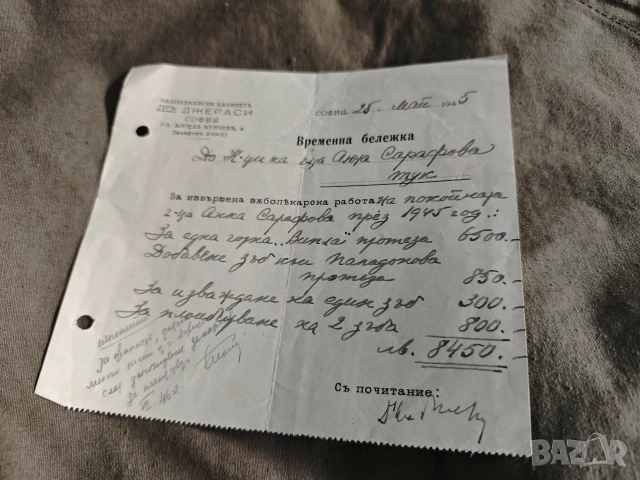 ЗѪБОЛѢКАРСКИ КАБИНЕТЪ
Д-РЪ ДЖЕРАСИ
СОФИЯ
УЛ. АНГЕЛЪ КЪНЧЕВЪ, 4
Телефонъ
СОФИЯ, 25 Май 1945
Временна бележка
До Н-ци на г-ца Анка Сарафова
тук
За извършена зѫболѣкарска работа на покойната
г-ца Анка Сарафова през 1945 год.:
За една горна "Випла" протеза 6500.-
Добавене зъб към Паладонова
протеза 850.-
За изваждане на един зъб 300.-
За пломбиране на 2 зъба 800.-
лв. 8450.-
Съ почитание:
BAZAR.bg